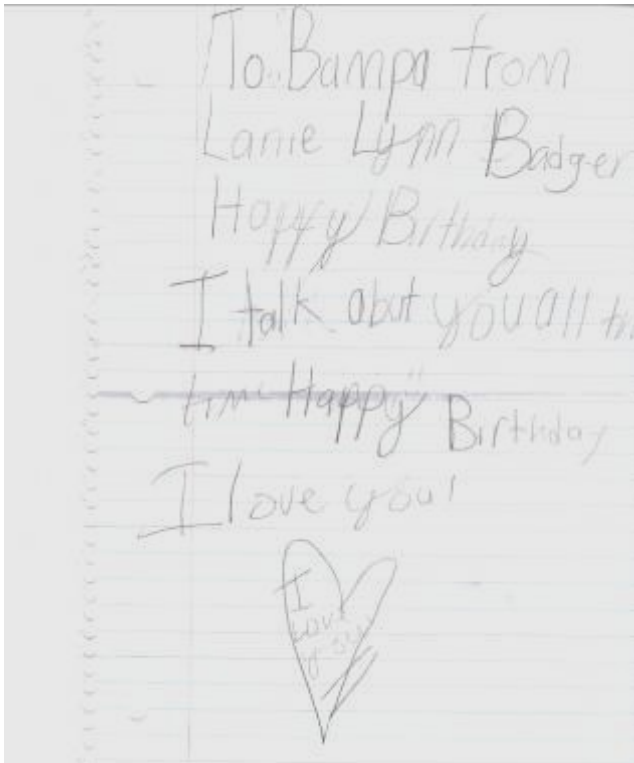 To Bampa from
Lanie Lynn Badger
Happy Birthday
I talk abut you all
tim Happy Birthday
I love you!
I
Love
you